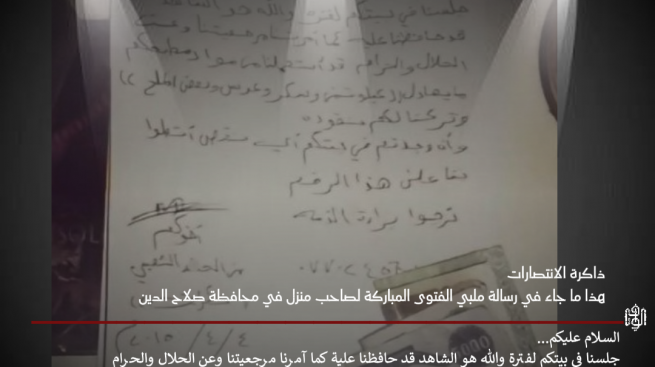 جلسنا في بيتكم لفترة والله هو الشاهد
قد حافظنا عليه كما أمرنا مرجعيتنا وعن
الحلال والحرام قد استعملنا من مواد مطبخكم
وتركنا لكم نقود
وأن وجدتم في بيتكم أي نقص اتصلوا
بنا على هذا الرقم
نرجوا براءة الذمه
أخوكم
٢٠١٥/٤/٤
ذاكرة الانتصارات
هذا ما جاء في رسالة ملبي الفتوى المباركة لصاحب منزل في محافظة صلاح الدين
السلام عليكم...
جلسنا في بيتكم لفترة والله هو الشاهد قد حافظنا علية كما آمرنا مرجعيتنا وعن الحلال والحرام